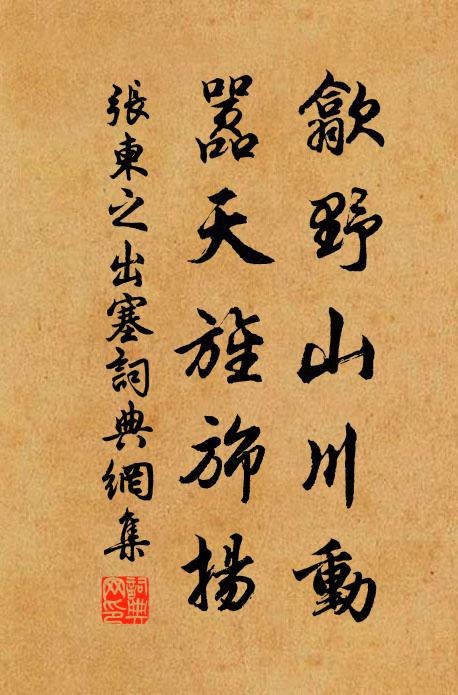 歙野山川動
囂天旌旆揚
張東之出塞詞典網集
詞典網印